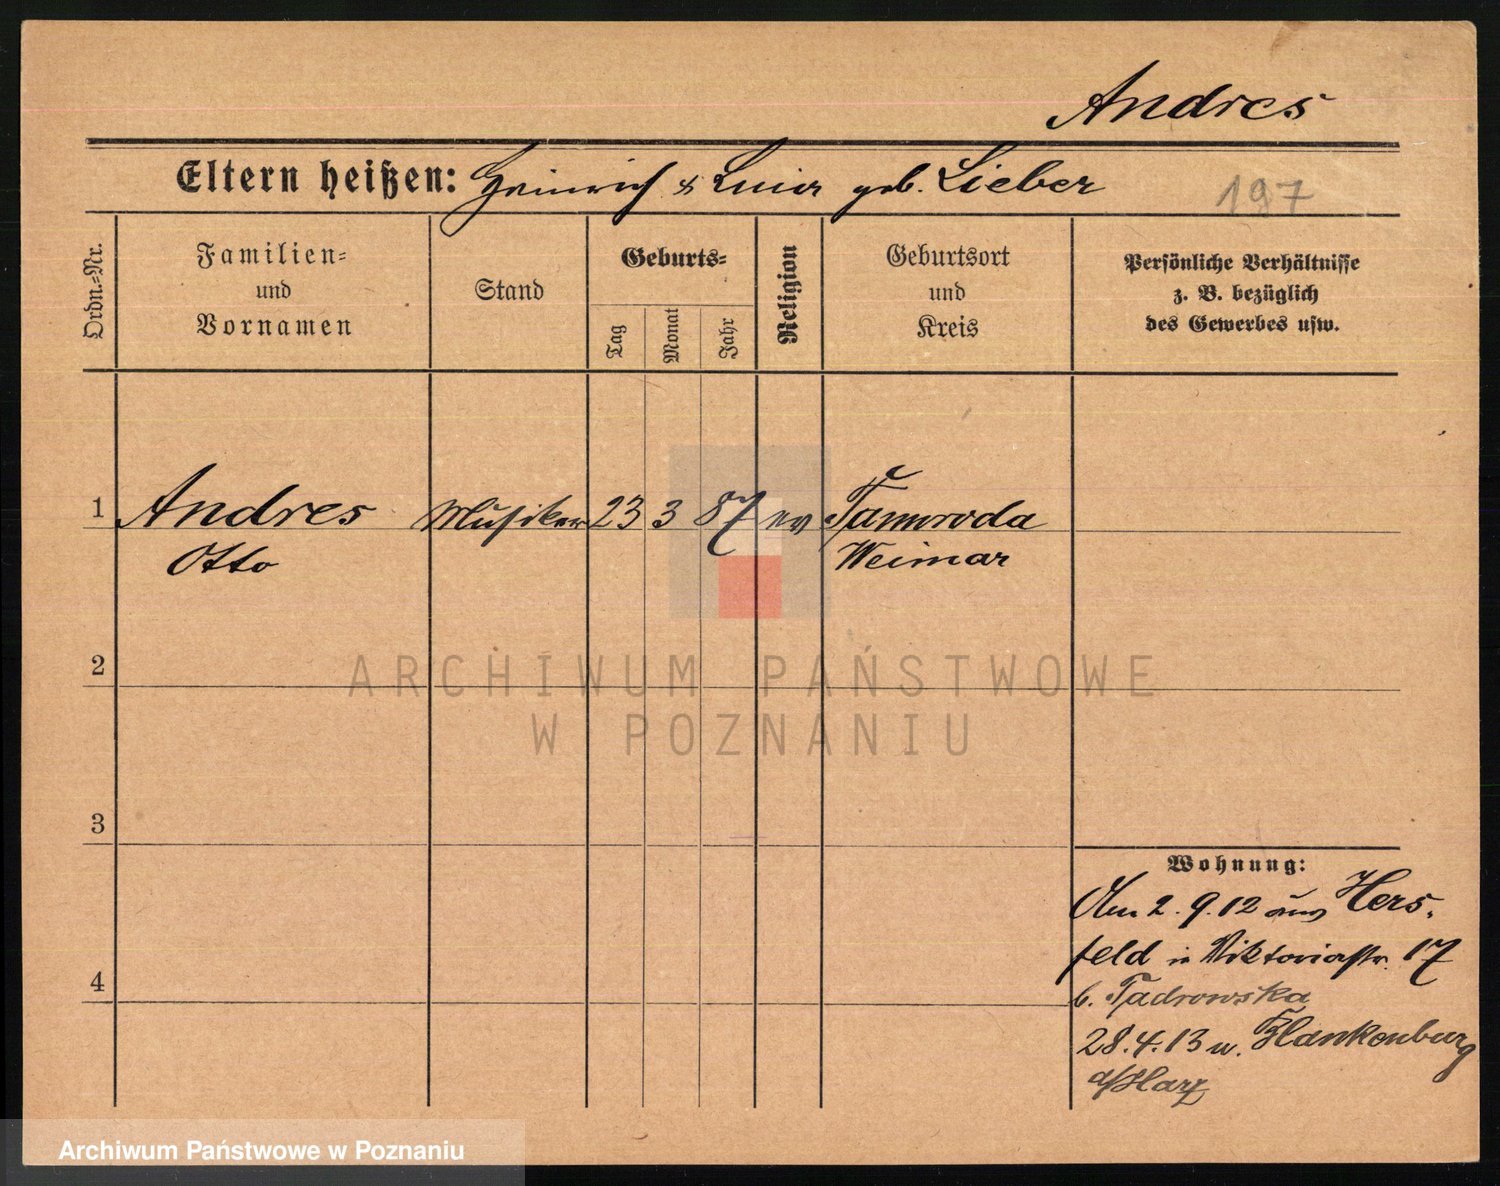 Andres
Eltern heißen: Heinrich & Luise geb. Lieber
197
Ordn.=Nr.
Familien=
und
Vornamen
Stand
Geburts=
Tag
Monat
Jahr
Religion
Geburtsort
und
Kreis
Persönliche Verhältnisse
z. B. bezüglich
des Gewerbes usw.
1 Andres Musiker 23 3 87 ev Tannroda
Otto Weimar
2
ARCHIWUM PAŃSTWOWE
W POZNANIU
3
Wohnung:
Am 2.9.12 aus Hers-
feld in Viktoriastr. 17
4
b. Tadrowska
28.4.13 n. Blankenburg
a/Harz
Archiwum Państwowe w Poznaniu